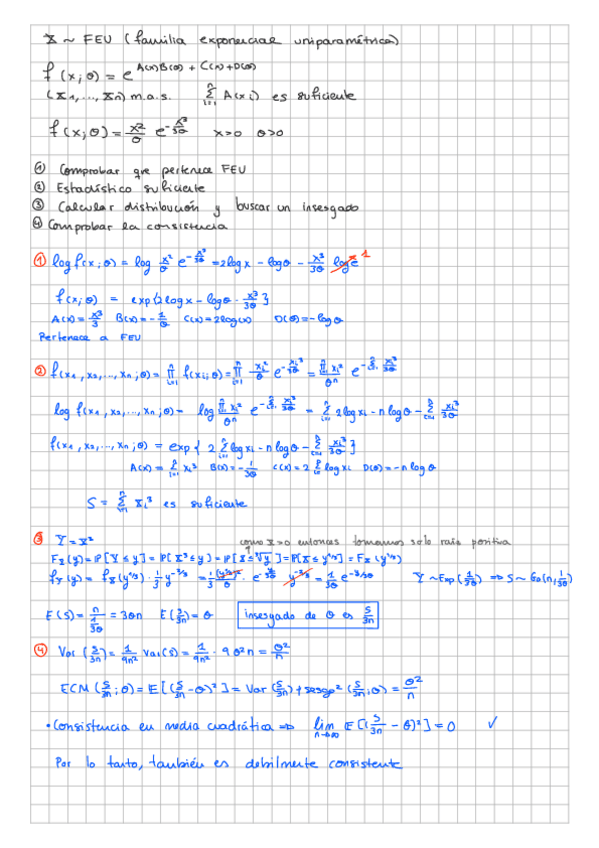 X ~ FEU (familia exponencial uniparamétrica)
f(x;θ) = e^{A(x)B(θ) + C(x)+D(θ)}
(X1,...,Xn) m.a.s. Σ_{i=1}^{n} A(xi) es suficiente
f(x;θ) = x²/θ e^{-x³/3θ} x>0 θ>0
① Comprobar que pertenece FEU
② Estadístico suficiente
③ Calcular distribución y buscar un insesgado
④ Comprobar la consistencia
① log f(x;θ) = log x²/θ e^{-x³/3θ} = 2log x - logθ - x³/3θ log e 1
f(x;θ) = exp{2log x - logθ - x³/3θ}
A(x) = x³/3 B(θ) = -1/θ C(x) = 2log(x) D(θ) = -logθ
Pertenece a FEU
② f(x1, x2,..., xn; θ) = Π_{i=1}^{n} f(xi;θ) = Π_{i=1}^{n} xi²/θ e^{-xi³/3θ} = Π_{i=1}^{n} xi²/θ^n e^{-Σ_{i=1}^{n} xi³/3θ}
log f(x1, x2,..., xn; θ) = log Π_{i=1}^{n} xi²/θ^n e^{-Σ_{i=1}^{n} xi³/3θ} = Σ_{i=1}^{n} 2log xi - n logθ - Σ_{i=1}^{n} xi³/3θ
f(x1, x2,..., xn; θ) = exp{2 Σ_{i=1}^{n} log xi - n logθ - Σ_{i=1}^{n} xi³/3θ}
A(x) = Σ_{i=1}^{n} xi³ B(θ) = -1/3θ C(x) = 2 Σ_{i=1}^{n} log xi D(θ) = -n logθ
S = Σ_{i=1}^{n} Xi³ es suficiente
③ Y = X³ como X>0 entonces tomamos solo raíz positiva
F_Y(y) = P[Y ≤ y] = P[X³ ≤ y] = P[X ≤ ∛y] = P[X ≤ y^{1/3}] = F_X(y^{1/3})
f_Y(y) = f_X(y^{1/3}) · 1/3 y^{-2/3} = 1/3 (y^{1/3})²/θ · e^{-y/3θ} y^{-2/3} = 1/3θ e^{-y/3θ} Y ~ Exp(1/3θ) ⇒ S ~ Ga(n, 1/3θ)
E(S) = n/(1/3θ) = 3θn E(S/3n) = θ insesgado de θ es S/3n
④ Var(S/3n) = 1/9n² Var(S) = 1/9n² · 9θ²n = θ²/n
ECM(S/3n; θ) = E[(S/3n - θ)²] = Var(S/3n) + sesgo²(S/3n; θ) = θ²/n
• Consistencia en media cuadrática ⇒ lim_{n→∞} E[(S/3n - θ)²] = 0 ✓
Por lo tanto, también es débilmente consistente